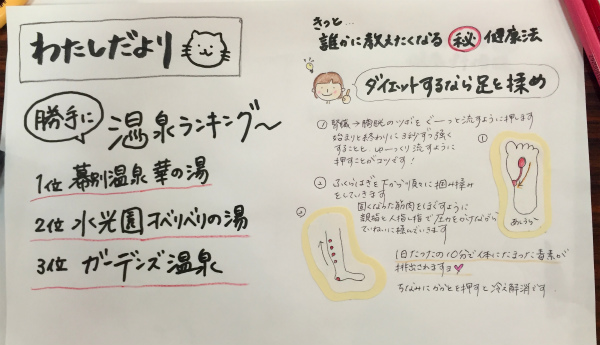 わたしだより
勝手に
温泉ランキング〜
1位 幕別温泉 華の湯
2位 水光園 オベリベリの湯
3位 ガーデンズ温泉
きっと…
誰かに教えたくなる ㊙ 健康法
ダイエットするなら足を揉め
① 腎臓→膀胱のツボを ぐーっと流すように押します
始まりと終わりに3秒ずつ強く
することと ゆーっくり流すように
押すことがコツです!
② ふくらはぎを下から順々に掴み揉み
をしていきます
固くなった筋肉をほぐすように
親指と人指し指で圧力をかけながら
ていねいに揉んでいきます
①
あしうら
②
1日たったの10分で体にたまった毒素が
排出されますョ
ちなみにかかとを押すと冷え解消です…